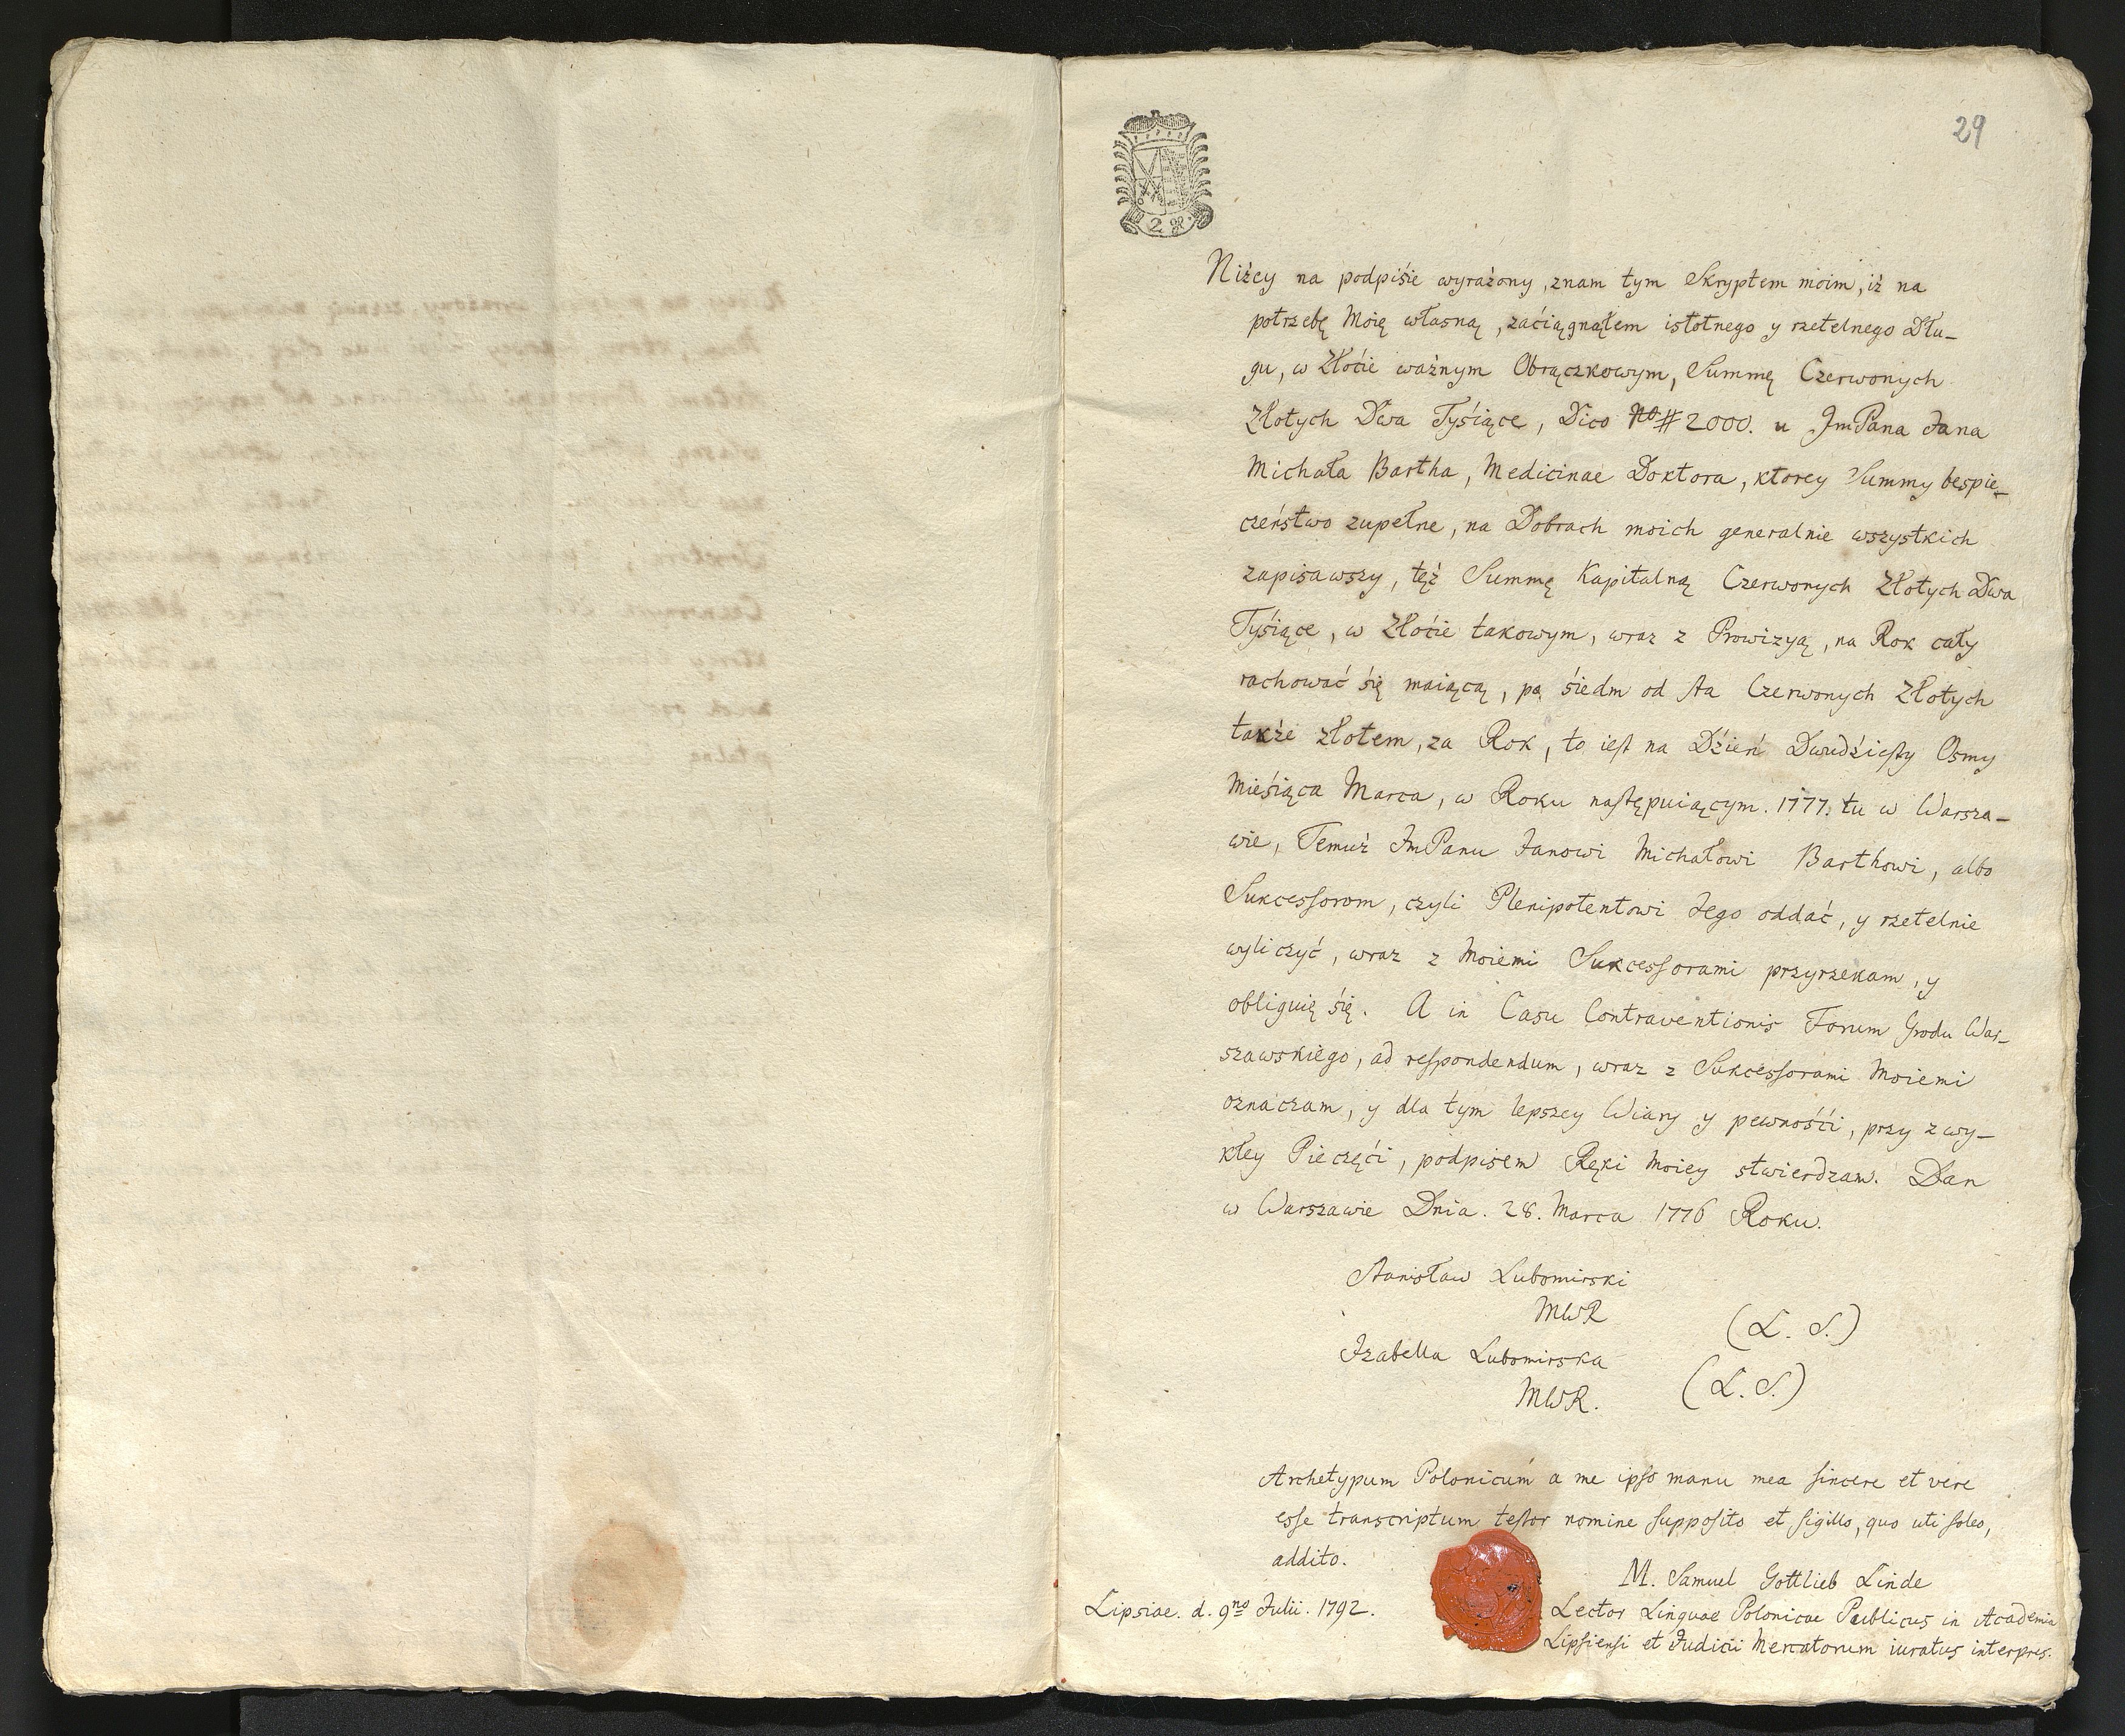 29
2
Niżey na podpiśie wyrażony, znam tym Skryptem moim, iż na
potrzebę Moię własną, zaćiągnąłem istotnego y rzetelnego Dłu-
gu, w Złoćie ważnym Obrączkowym, Summę Czerwonych
Złotych Dwa Tyśiące, Dico No # 2000. u JmPana Jana
Michała Bartha, Medicinae Doktora, ktorey Summy bespie-
czeństwo zupełne, na Dobrach moich generalnie wszystkich
zapisawszy, tęż Summę Kapitalną Czerwonych Złotych Dwa
Tyśiące, w Złoćie takowym, wraz z Prowizyą, na Rok cały
rachować śię maiącą, po śiedm od Sta Czerwonych Złotych
także złotem, za Rok, to iest na Dźień Dwudźiesty Osmy
Mieśiąca Marca, w Roku następuiącym. 1777. tu w Warsza-
wie, Temuż JmPanu Janowi Michałowi Barthowi, albo
Sukcessorom, czyli Plenipotentowi Jego oddać, y rzetelnie
wyliczyć, wraz z Moiemi Sukcessorami przyrzekam, y
obliguię śię. A in Casu Contraventionis Forum Grodu War-
szawskiego, ad respondendum, wraz z Sukcessorami Moiemi
oznaczam, y dla tym lepszey Wiary y pewnośći, przy zwy-
kłey Pieczęći, podpisem Ręki Moiey stwierdzam. Dan
w Warszawie Dnia. 28. Marca 1776 Roku.
Stanisław Lubomirski
MWR
(L. S.)
Izabella Lubomirska
MWR.
(L. S.)
Archetypum Polonicum a me ipso manu mea sincere et vere
esse transcriptum testor nomine supposito et sigillo, quo uti soleo,
addito.
M. Samuel Gottlieb Linde
Lipsiae. d. 9no Julii. 1792.
Lector Linguae Polonicae Publicus in Academia
Lipsiensi et Judicii Mercatorum iuratus interpres.